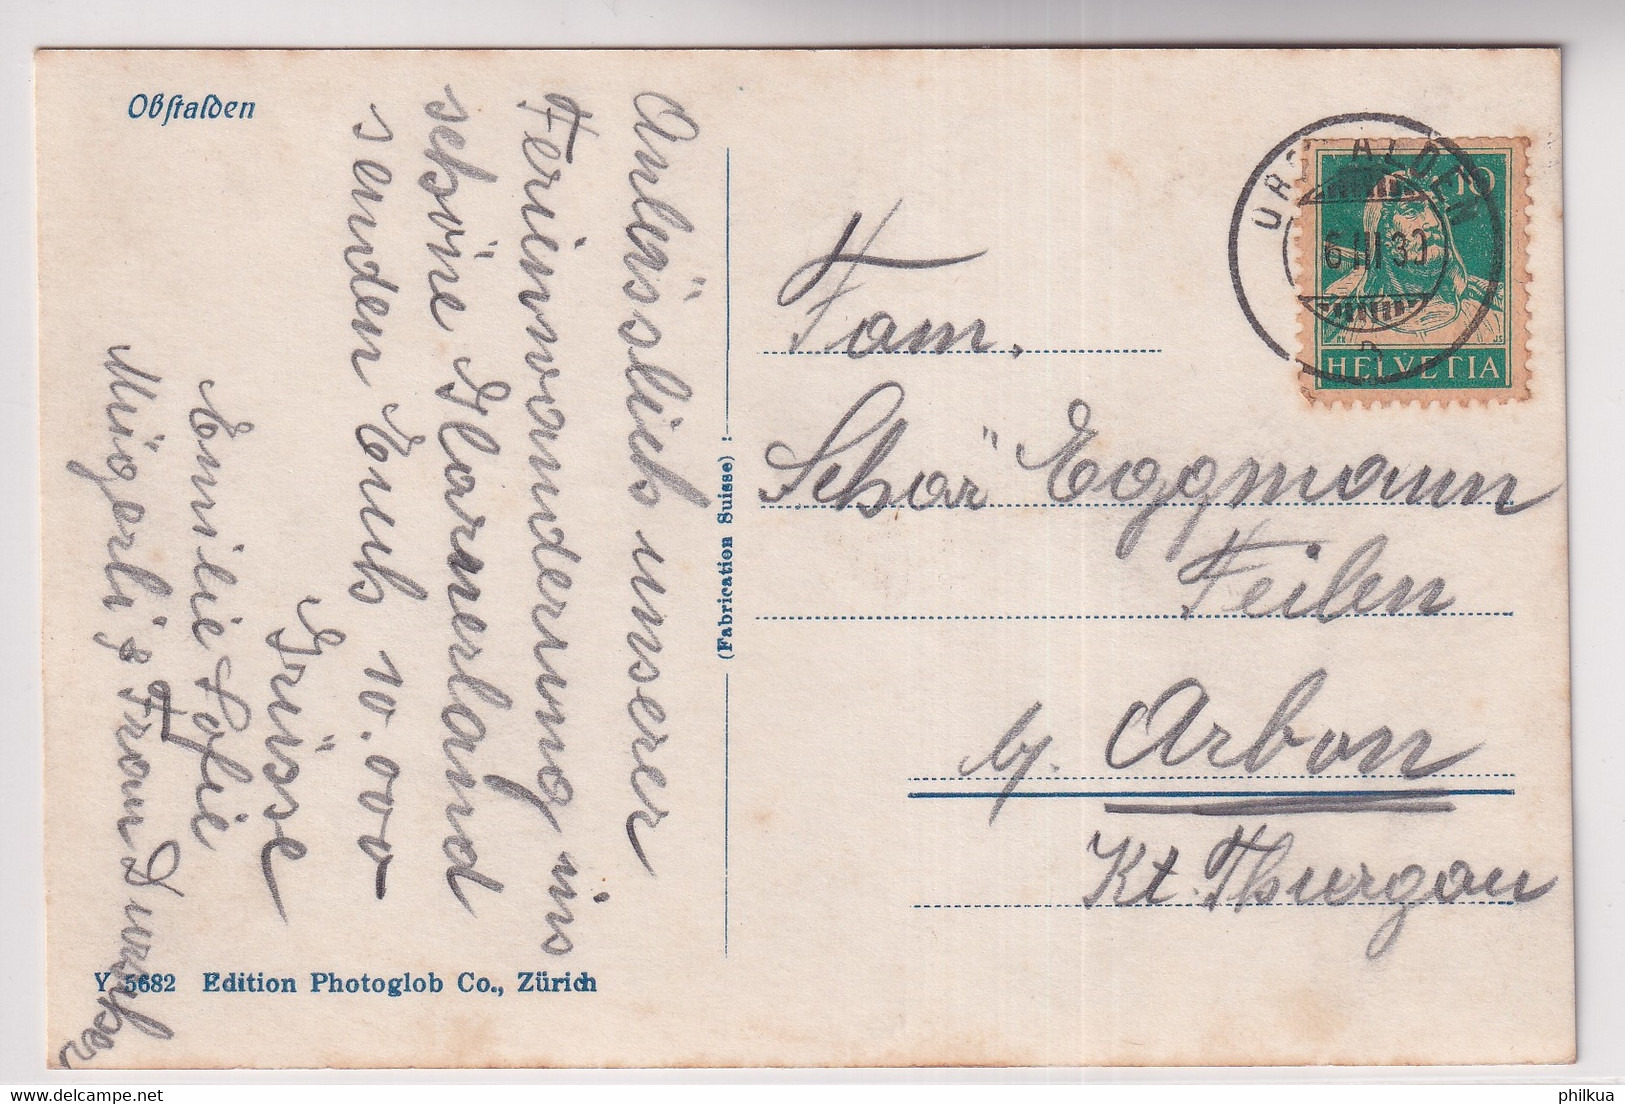 Obstalden
Anlässlich unserer
Ferienwanderung ins
schöne Glarnerland
senden Euch 10.000
Grüsse
Emilie Sofie
Müggerli & Frau
Y 5682 Edition Photoglob Co., Zürich
(Fabrication Suisse)
10
HELVETIA
6 III 30
Fam.
Schär Eggmann
Feilen
b/. Arbon
Kt. Thurgau
www.delcampe.net
philkua